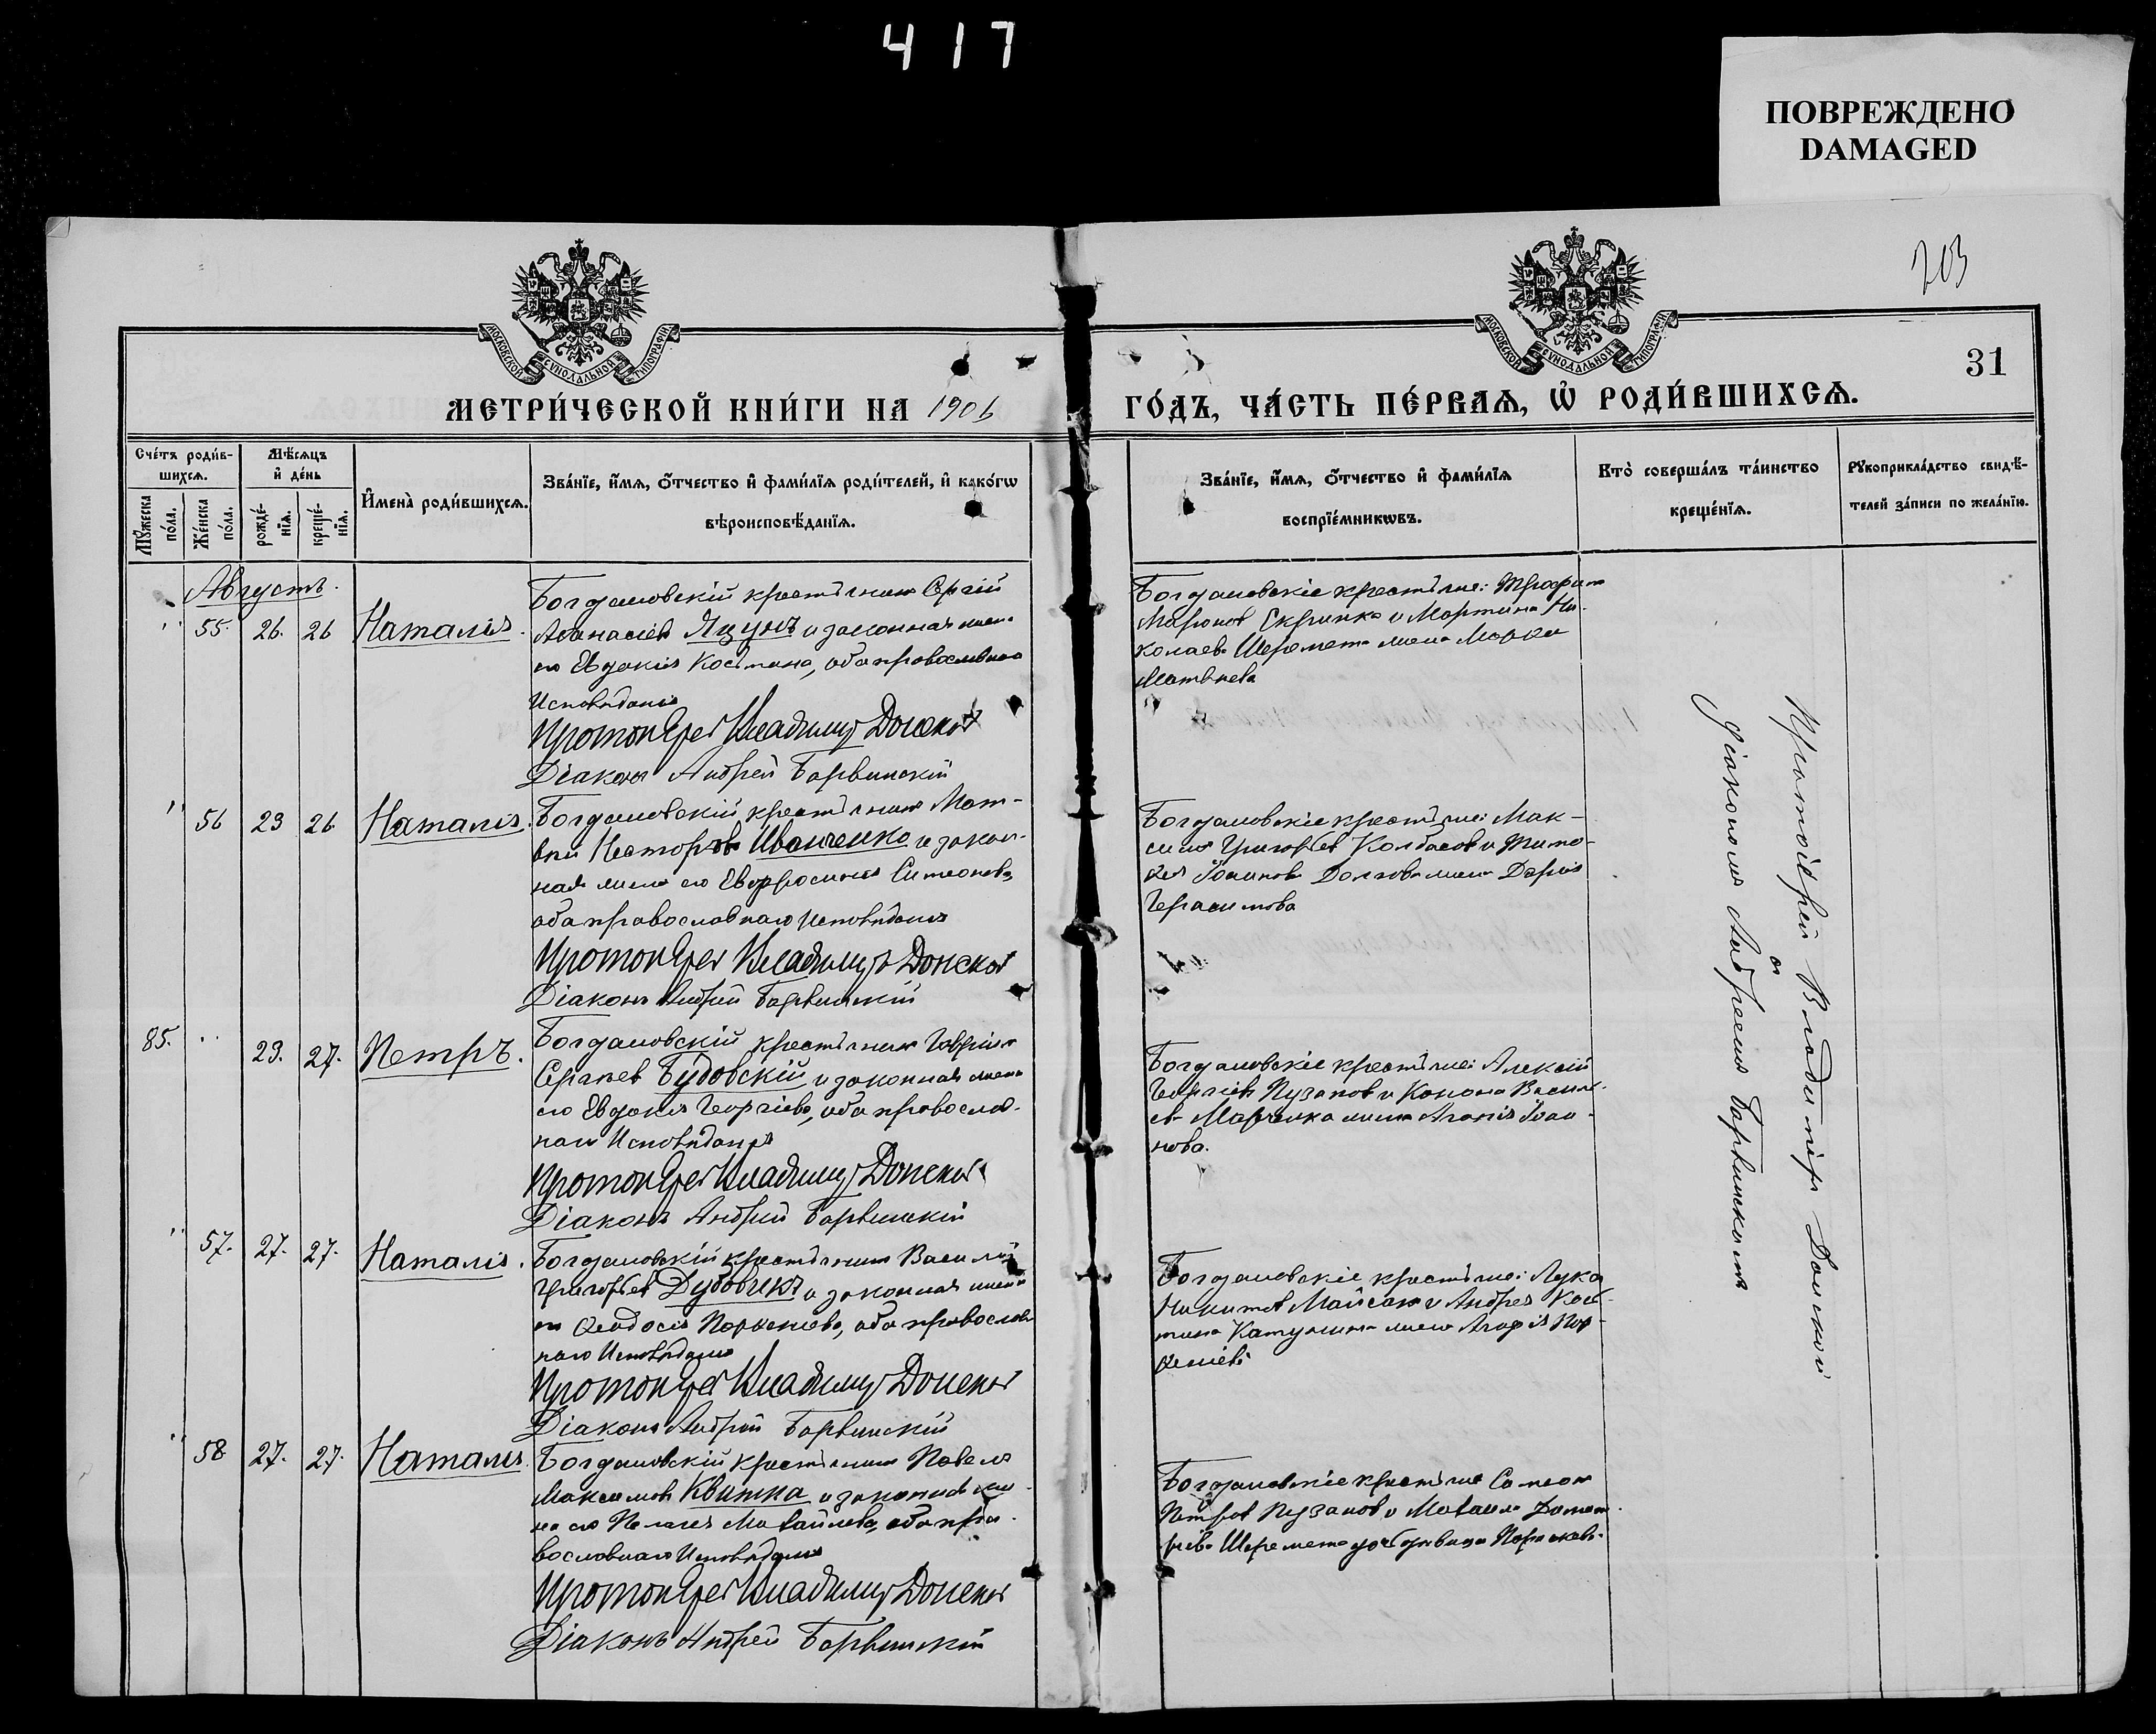 417
ПОВРЕЖДЕНО
DAMAGED
203
МОСКОВСКОЙ СѴНОДАЛЬНОЙ ТИПОГРАФІИ
МОСКОВСКОЙ СѴНОДАЛЬНОЙ ТИПОГРАФІИ
31
МЕТРИ́ЧЕСКОЙ КНИ́ГИ НА 1906
ГО́ДЪ, ЧА́СТЬ ПЕ́РВАѦ, Ѡ҆ РОДИ́ВШИХСѦ.
Сче́тъ роди́в-
шихсѧ.
Мѣ́сѧцъ
и҆ де́нь
Мꙋ́жеска
по́ла.
Же́нска
по́ла.
рожде́-
нїѧ.
креще́-
нїѧ.
И҆мена̀ роди́вшихсѧ.
Зва́нїе, и҆́мѧ, ѻ҆́тчество и҆ фами́лїѧ роди́телей, и҆ како́гѡ
вѣроисповѣ́данїѧ.
Зва́нїе, и҆́мѧ, ѻ҆́тчество и҆ фами́лїѧ
воспрїе́мникѡвъ.
Кто̀ соверша́лъ та́инство
креще́нїѧ.
Рꙋкоприкла́дство свидѣ́-
телей за́писи по жела́нїю.
Августъ.
" 55. 26. 26 Наталія.
Богдановскій крестьянинъ Сергій
Аѳанасіевъ Яцунъ и законная жена
его Евдокія Костина, оба православнаго
Исповѣданія
Протоіерей Владимір Донской
Діаконъ Андрей Барвинскій
Богдановскіе крестьяне: Трофимъ
Миронов Скрипка и Мартина Ни-
колаева Шеремета жена Марѳа
Матвѣева
" 56 23 26 Наталія.
Богдановскій крестьянинъ Мат-
вѣй Несторовъ Иванченко и закон-
ная жена его Евфросинія Симеонова,
оба православнаго Исповѣданія
Протоіерей Владиміръ Донской
Діаконъ Андрей Барвинскій
Богдановскіе крестьяне: Мак-
симъ Григорьев Колбасов и Тимо-
ѳея Іоаннова Долгова жена Дарія
Герасимова
85. " 23. 27. Петръ.
Богдановскій крестьянинъ Гавріилъ
Сергѣев Будовскій и законная жена
его Евдокія Георгіева, оба православ-
наго Исповѣданія
Протоіерей Владимір Донской
Діаконъ Андрей Барвинскій
Богдановскіе крестьяне: Алексій
Георгіевъ Пузанов и Конона Василь-
ев Марченка жена Агапія Іоан-
нова.
" 57. 27. 27. Наталія.
Богдановскій крестьянинъ Василій
Григорьев Дубовикъ и законная жена
его Ѳеодосія Парѳеніева, оба православ
наго Исповѣданія
Протоіерей Владимір Донской
Діаконъ Андрей Барвинскій
Богдановскіе крестьяне: Лука
Никитов Майсак и Андрея Кос-
тина жена Пар-
ѳеніева
" 58 27. 27. Наталія
Богдановскій крестьянинъ Павелъ
Максимовъ Квитка и законная же-
на его Пелагея Михайлова, оба пра-
вославнаго Исповѣданія
Протоіерей Владимір Донской
Діаконъ Андрей Барвинскій
Богдановскіе крестьяне Симеон
Петров Пузанов и Михаила Димит-
ріева Шеремета дочь дѣвица Параскева.
Протоіерей Владиміръ Донской
съ
Діакономъ Андреемъ Барвинскимъ